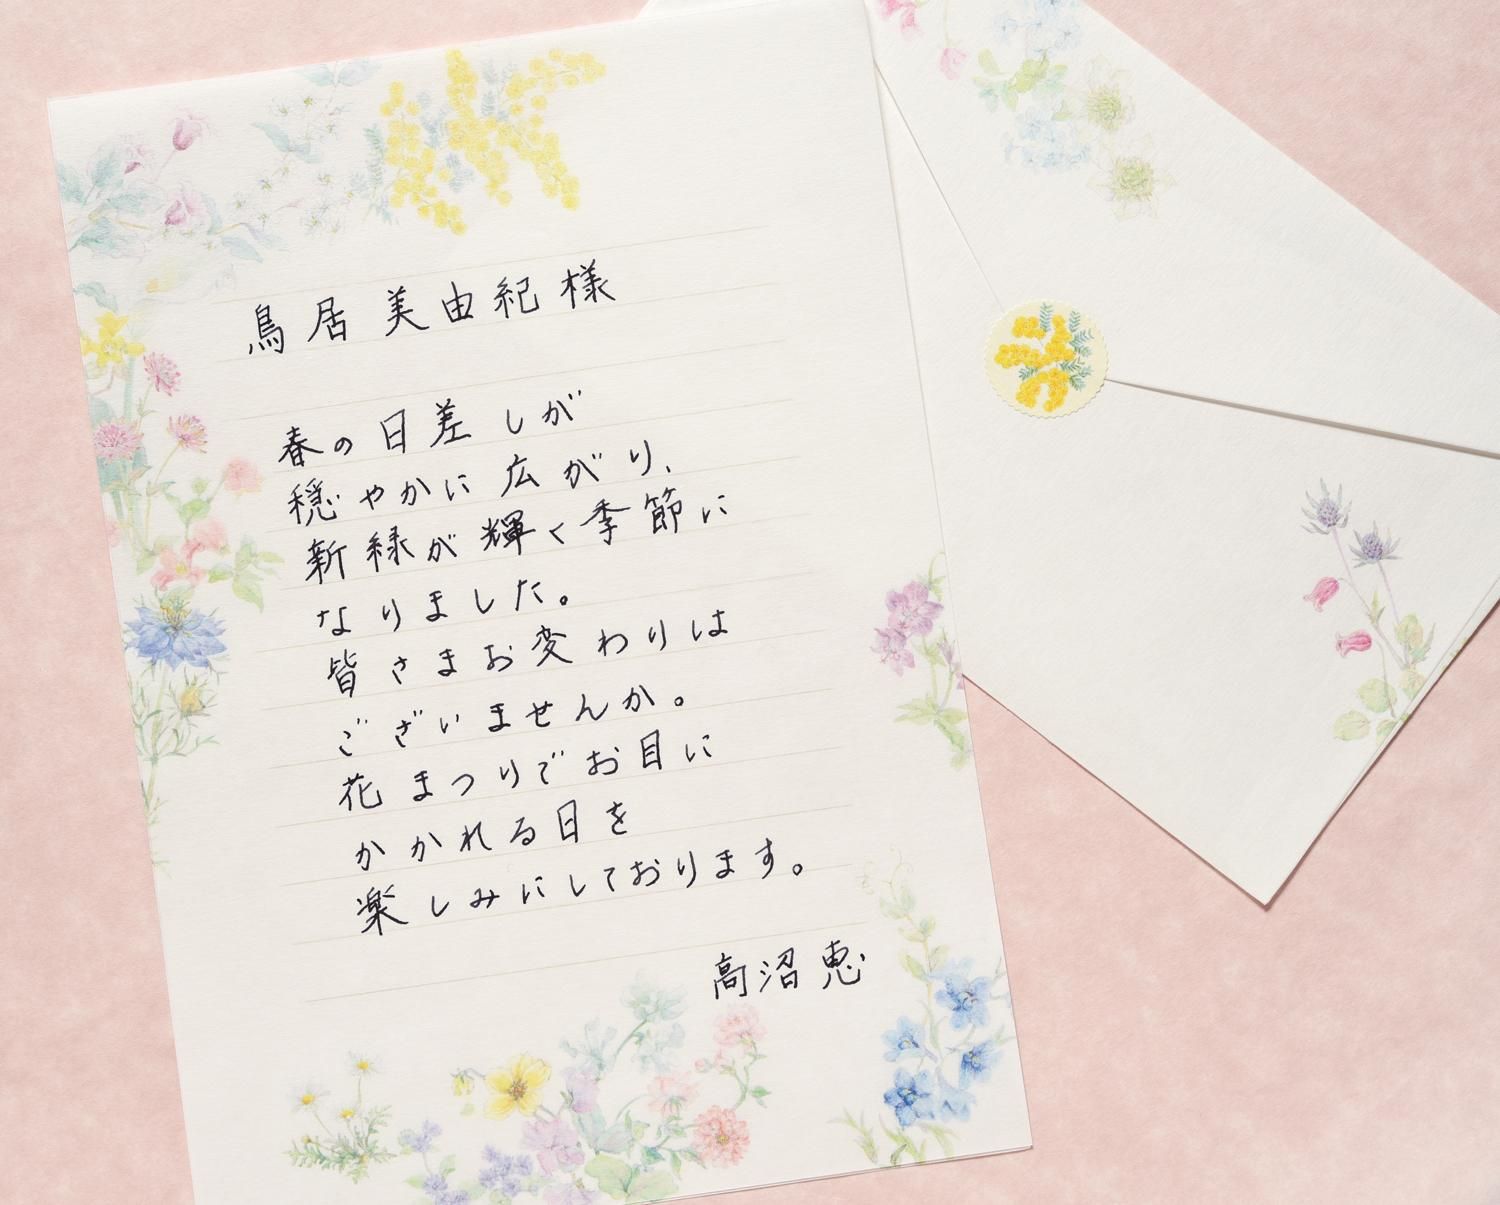 鳥居 美由紀 様
春の日差しが
穏やかに広がり、
新緑が輝く季節に
なりました。
皆さまお変わりは
ございませんか。
花まつりでお目に
かかれる日を
楽しみにしております。
高沼 恵